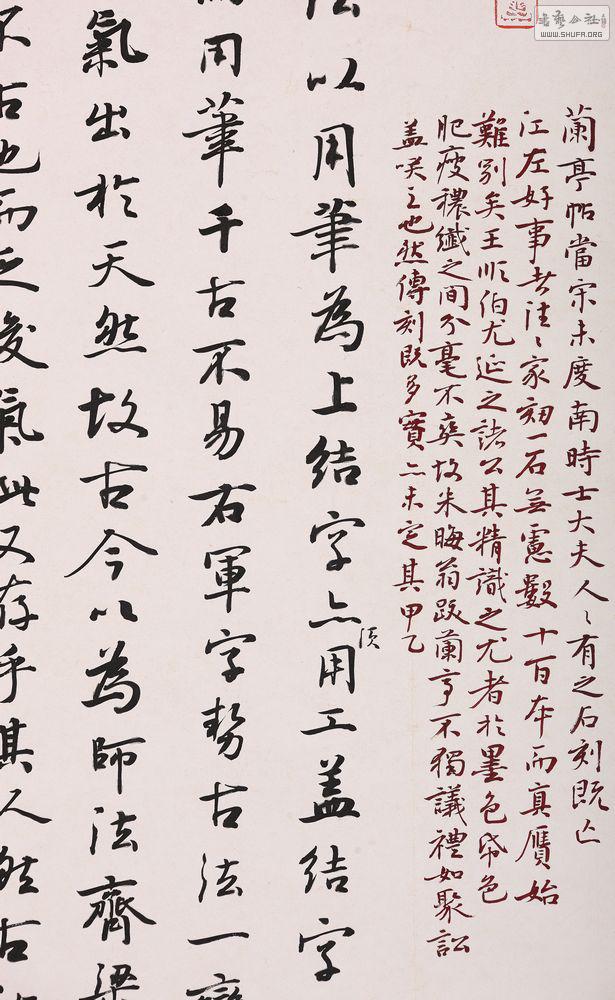 书艺公社
WWW.SHUFA.ORG
蘭亭帖當宋未度南時士大夫人〻有之石刻既亡
江左好事者往〻家刻一石無慮數十百本而真贋始
難別矣王順伯尤延之諸公其精識之尤者於墨色帋色
肥瘦穠纖之間分毫不爽故朱晦翁跋蘭亭不獨議禮如聚訟
盖咲之也然傳刻既多實亦未定其甲乙
法以用筆為上結字亦須用工盖結字
而用筆千古不易右軍字勢古法一變
氣出於天然故古今以為師法齊梁
不古也而乏俊氣此又存乎其人然古